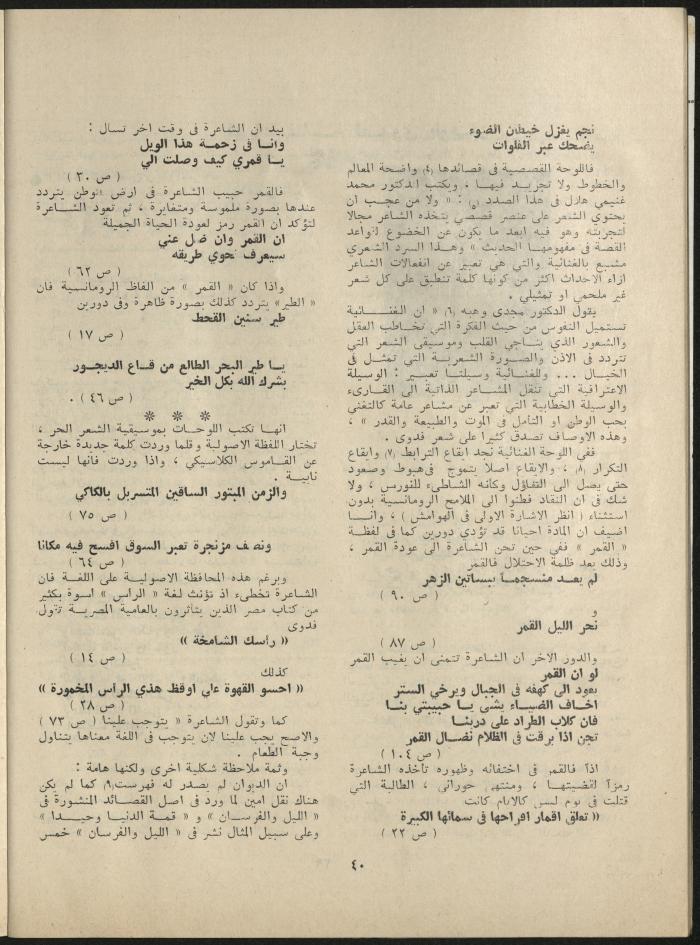 نجم يغزل خيطان الضوء
يضحك عبر الفلوات
فاللوحة القصصية في قصائدها (٤) واضحة المعالم
والخطوط ولا تجريد فيها ، ويكتب الدكتور محمد
غنيمي هلال في هذا الصدد (٥) : « ولا من عجب ان
يحتوي الشعر على عنصر قصصي يتخذه الشاعر مجالا
لتجربته وهو فيه ابعد ما يكون عن الخضوع لقواعد
القصة في مفهومها الحديث » وهذا السرد الشعري
مشبع بالغنائية والتي هي تعبير عن انفعالات الشاعر
ازاء الاحداث اكثر من كونها كلمة تنطبق على كل شعر
غير ملحمي او تمثيلي .
يقول الدكتور مجدى وهبه (٦) « ان الغنــائية
تستميل النفوس من حيث الفكرة التي تخاطب العقل
والشعور الذي يناجي القلب وموسيقى الشعر التي
تتردد في الاذن والصورة الشعرية التي تمثل في
الخيال ... وللغنائية وسيلتا تعبير : الوسيلة
الاعترافية التي تنقل المشاعر الذاتية الى القارىء
والوسيلة الخطابية التي تعبر عن مشاعر عامة كالتغني
بحب الوطن او التأمل في الموت والطبيعة والقدر » ،
وهذه الاوصاف تصدق كثيرا على شعر فدوى .
ففي اللوحة الغنائية نجد ايقاع الترابط (٧) وايقاع
التكرار (٨) ، والايقاع اصلا يتموج في هبوط وصعود
حتى يصل الى التفاؤل وكانه الشاطىء للنورس ، ولا
شك في ان النقاد فطنوا الى الملامح الرومانسية بدون
استثناء ( انظر الاشارة الاولى في الهوامش ) ، وانــا
اضيف ان المادة احيانا قد تؤدي دورين كما في لفظة
« القمر » ففي حين تحن الشاعرة الى عودة القمر ،
وذلك بعد ظلمة الاحتلال فالقمر
لم يعــد منسجمــا ببساتين الزهر
( ص ٩٠ )
و
نحر الليل القمر
( ص ٨٧ )
والدور الاخر ان الشاعرة تتمنى ان يغيب القمر
لو ان القمر
يعود الى كهفه في الجبال ويرخي الستر
اخـاف الضيـاء يشى يـا حبيبتي بنـا
فان كلاب الطراد على دربنـا
تجن اذا برقت في الظلام نصـال القمر
( ص ١٠٤ )
اذا فالقمر في اختفائه وظهوره تأخذه الشاعرة
رمزا لقضيتهـا ، ومنتهى حوراني ، الطالبة التي
قتلت في يوم ليس كالايام كانت
(( تعلق اقمار افراحها في سمائها الكبيرة
( ص ٢٢ )
بيد ان الشاعرة في وقت اخر تسال :
وانـا في زحمة هذا الويل
يـا قمري كيف وصلت الي
( ص ٣٠ )
فالقمر حبيب الشاعرة في ارض الوطن يتردد
عندها بصورة ملموسة ومتغايرة ، ثم تعود الشـاعرة
لتؤكد ان القمر رمز لعودة الحياة الجميلة
ان القمر وان ضل عني
سيعرف نحوي طريقه
( ص ٦٢ )
واذا كان « القمر » من الفاظ الرومانسية فان
« الطير» يتردد كذلك بصورة ظاهرة وفي دورين
طير سنين القحط
( ص ١٧ )
يـا طير البحر الطالع من قـاع الديجـور
بشرك الله بكل الخير
( ص ٤٦ ) .
* * *
انهـا تكتب اللوحـات بموسيقية الشعر الحر ،
تختار اللفظة الاصولية وقلما وردت كلمة جديدة خارجة
عن القاموس الكلاسيكي ، واذا وردت فانها ليست
نابيـة .
والزمن المبتور الساقين المتسربل بالكاكي
( ص ٧٥ )
ونصف مزنجرة تعبر السوق افسح فيه مكانا
( ص ٦٤ )
وبرغم هذه المحافظة الاصولية على اللغة فان
الشاعرة تخطىء اذ تؤنث لغة « الراس » اسوة بكثير
من كتاب مصر الذين يتأثرون بالعامية المصرية تقول
فدوى
(( رأسك الشامخة ))
( ص ١٤ )
كذلك
(( احسو القهوة علي اوقظ هذي الرأس المخمورة ))
( ص ٢٨ )
كما وتقول الشاعرة « يتوجب علينا ( ص ٧٣ )
والاصح يجب علينا لان يتوجب في اللغة معناها يتناول
وجبة الطعام .
وثمة ملاحظة شكلية اخرى ولكنها هامة :
ان الديوان لم يصدر له فهرست(٩) كما لم يكن
هناك نقل امين لما ورد في اصل القصـائد المنشورة في
« الليل والفرسـان » و « قمـة الدنيـا وحيـدا »
وعلى سبيل المثال نشر في « الليل والفرسان » خمس
٤٠